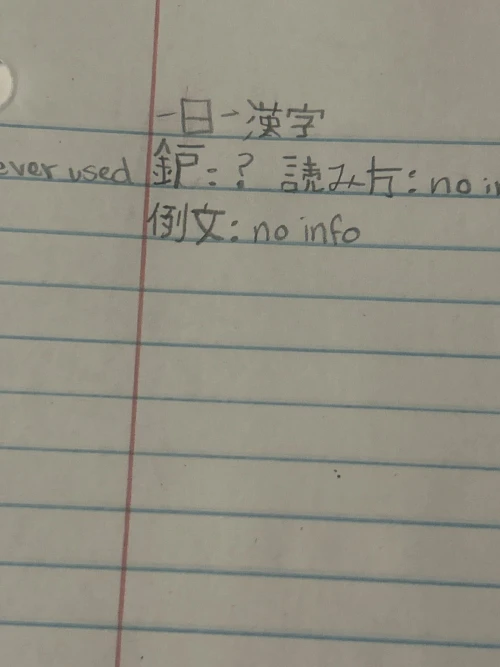 一日一漢字
ever used 鈩:? 読み方: no in
例文: no info